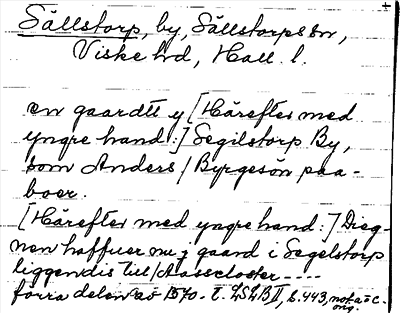 Sällstorp, by, Sällstorps sn,
Viske hd, Hall. l.
en gaardtt y [Härefter med
yngre hand:] Segilstorp By,
som Anders / Byrgesøn paa-
boer.
[Härefter med yngre hand:] Dieg-
nen haffuer nu j gaard i Segelstorp
liggendis till / Aasscloster ----
förra delen av 1570-t. LSLB II, s. 443, not a o c.
orig.